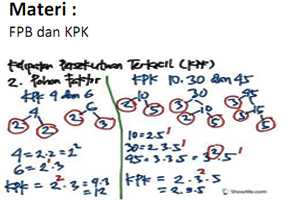 Materi :
FPB dan KPK
Kelipatan Persekutuan Terkecil (KPK)
2. Pohon Faktor
KPK 4 dan 6
4
2 2
6
2 3
4 = 2.2 = 2²
6 = 2.3
KPK = 2².3 = 4.3
= 12
KPK 10.30 dan 45
10
2 5
30
3 10
2 5
45
3 15
3 5
10 = 2.5
30 = 2.3.5
45 = 3.3.5 = 3².5
KPK = 2.3².5
= 2.9.5
ShowMe.com